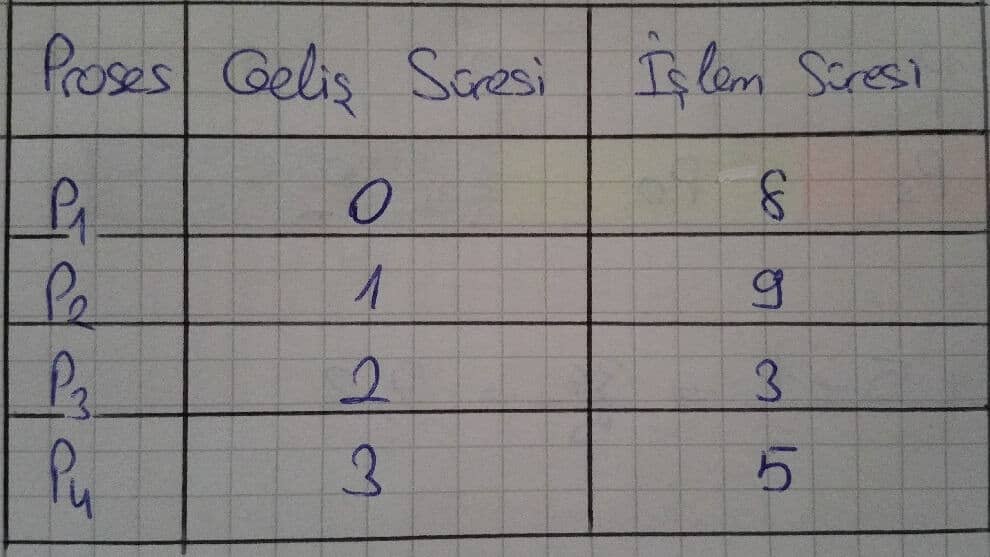 Proses Geliş Süresi İşlem Süresi
P1 0 8
P2 1 9
P3 2 3
P4 3 5